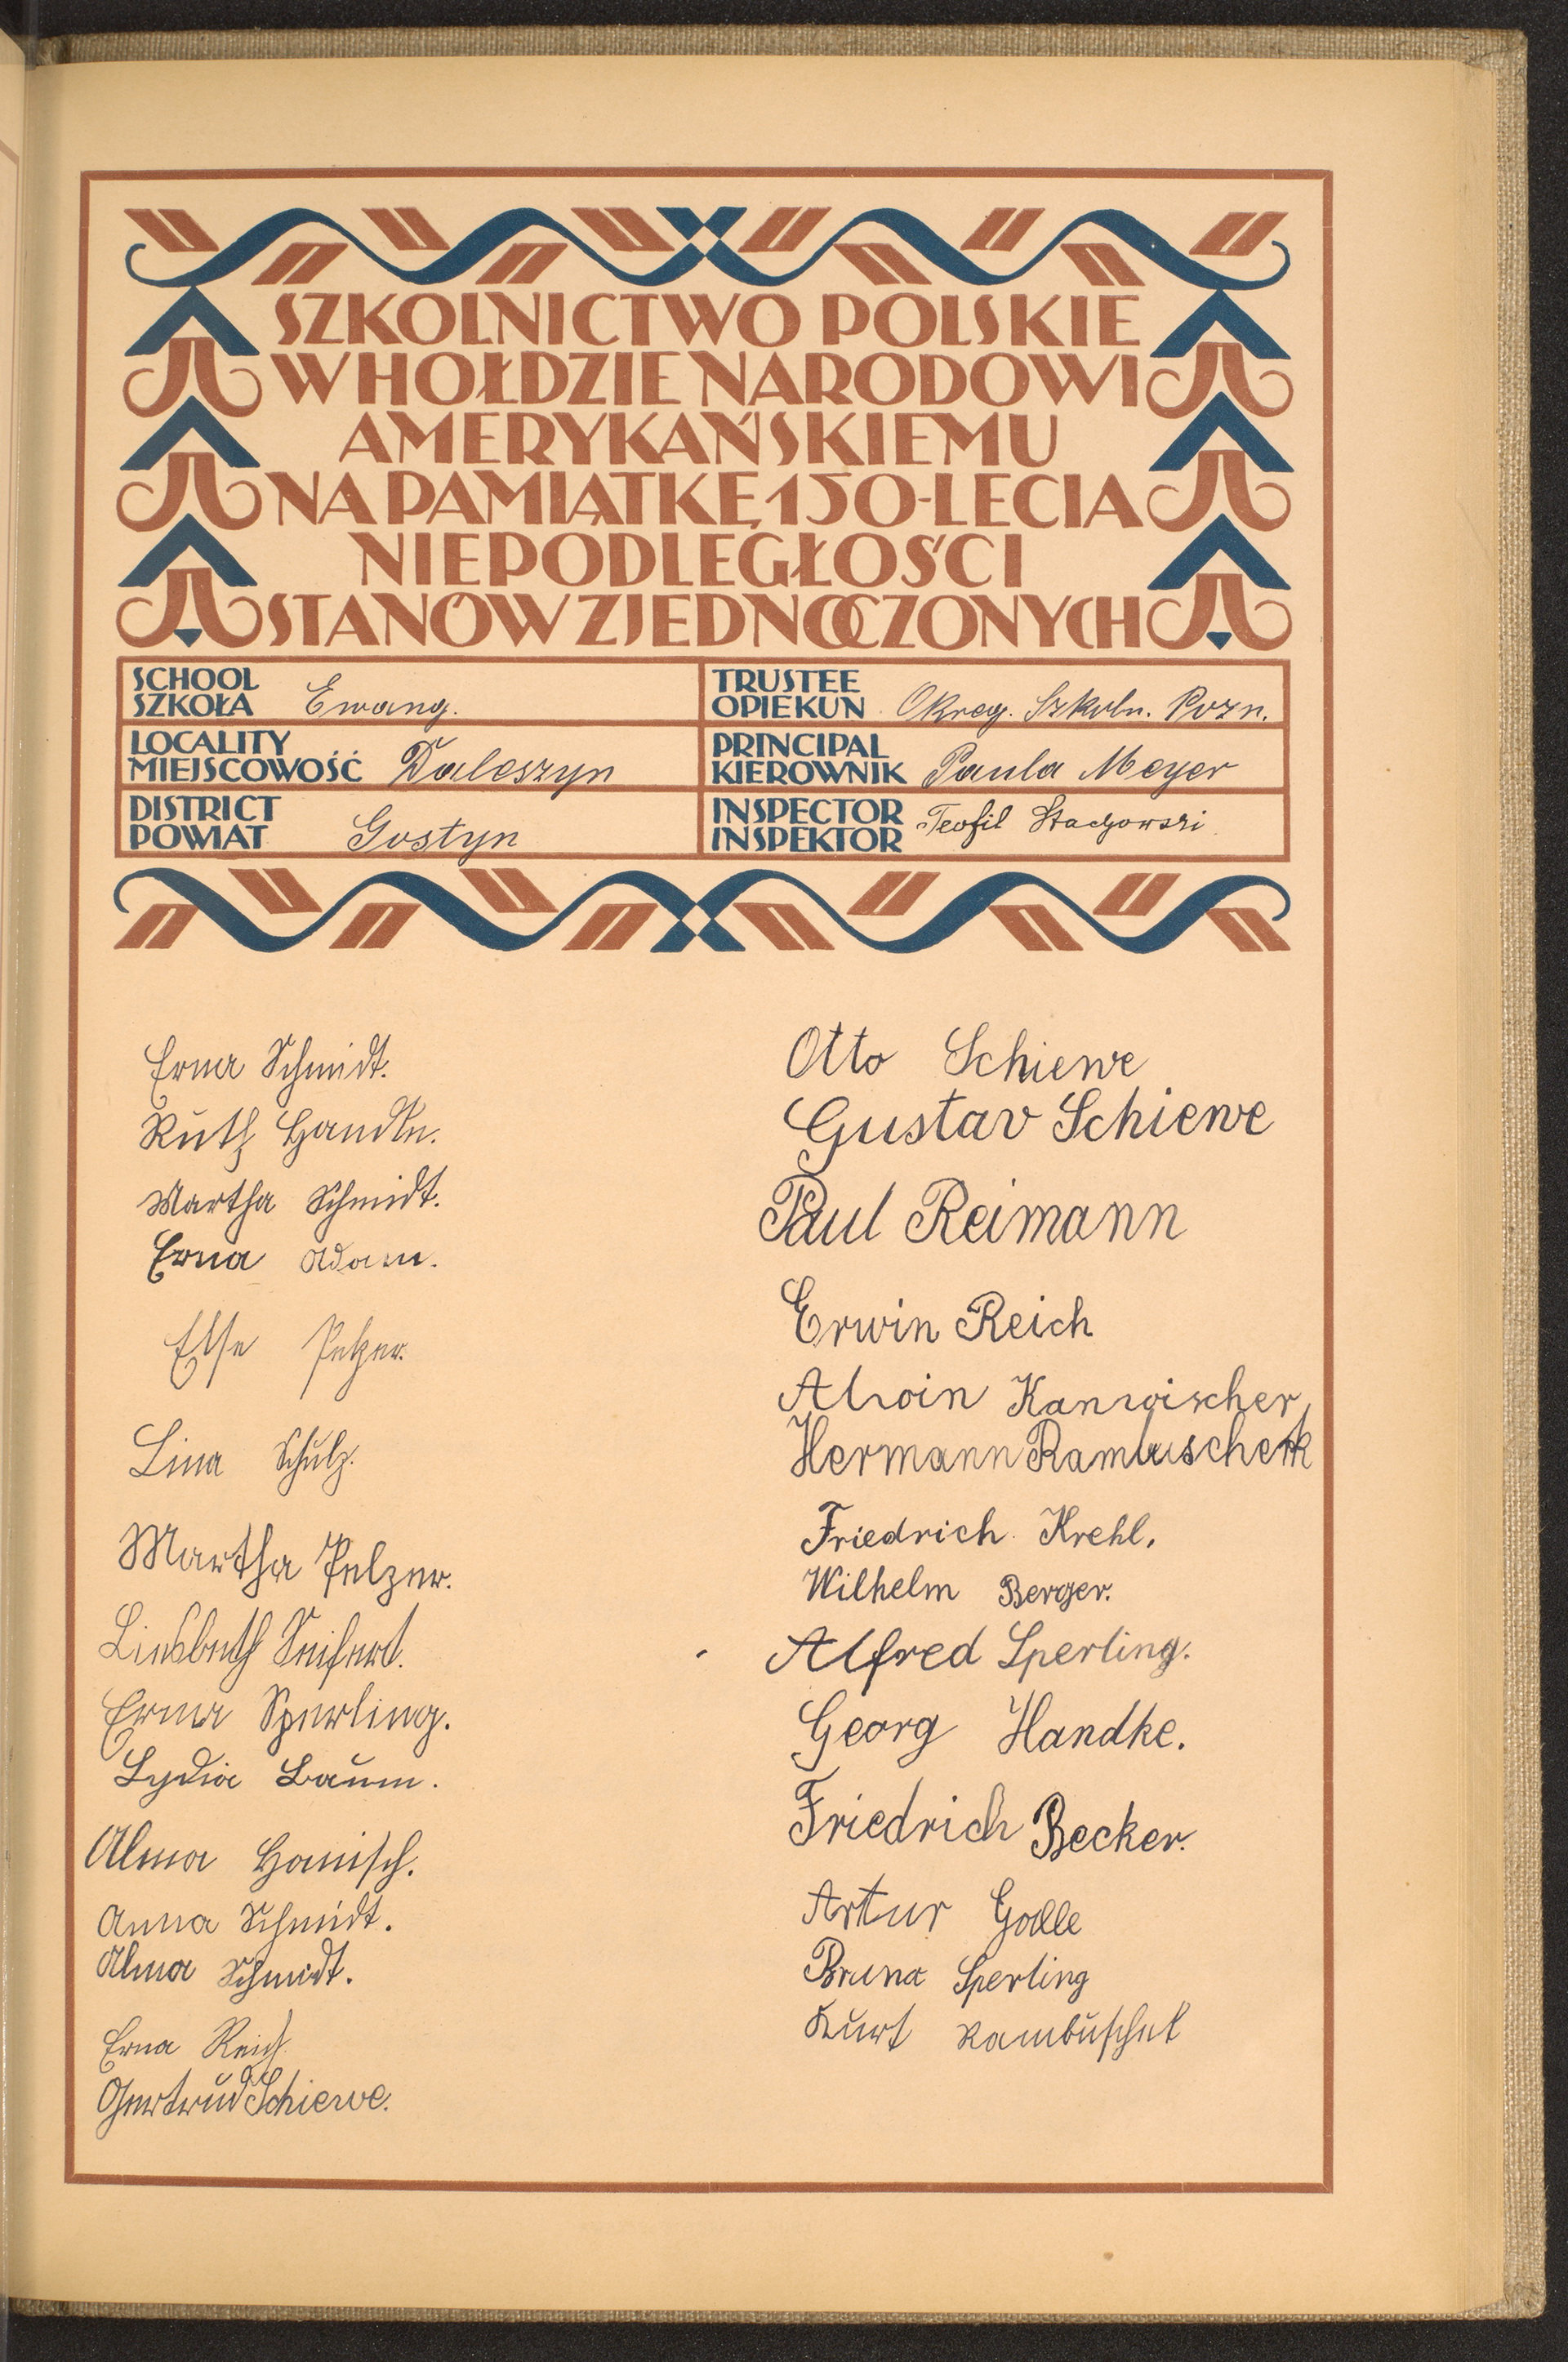 SZKOLNICTWO POLSKIE
W HOŁDZIE NARODOWI
AMERYKAŃSKIEMU
NA PAMIĄTKĘ 150-LECIA
NIEPODLEGŁOŚCI
STANÓW ZJEDNOCZONYCH
SCHOOL
SZKOŁA Ewang.
TRUSTEE
OPIEKUN Okreg. Szkoln. Pozn.
LOCALITY
MIEJSCOWOŚĆ Daleszyn
PRINCIPAL
KIEROWNIK Paula Meyer
DISTRICT
POWIAT Gostyn
INSPECTOR
INSPEKTOR Teofil Stachowski
Erna Schmidt.
Ruth Handke.
Martha Schmidt.
Erna Adam.
Else Pelzer.
Lina Schulz.
Martha Pelzer.
Liesbeth Seifert.
Erna Sperling.
Lydia Baum.
Alma Hanisch.
Anna Schmidt.
Alma Schmidt.
Erna Reich
Gertrud Schiewe.
Otto Schiewe
Gustav Schiewe
Paul Reimann
Erwin Reich
Alwin Kanwischer
Hermann
Friedrich Krehl.
Wilhelm Berger.
Alfred Sperling.
Georg Handke.
Friedrich Becker.
Artur Golle
Bruno Sperling
Kurt Rambuschek